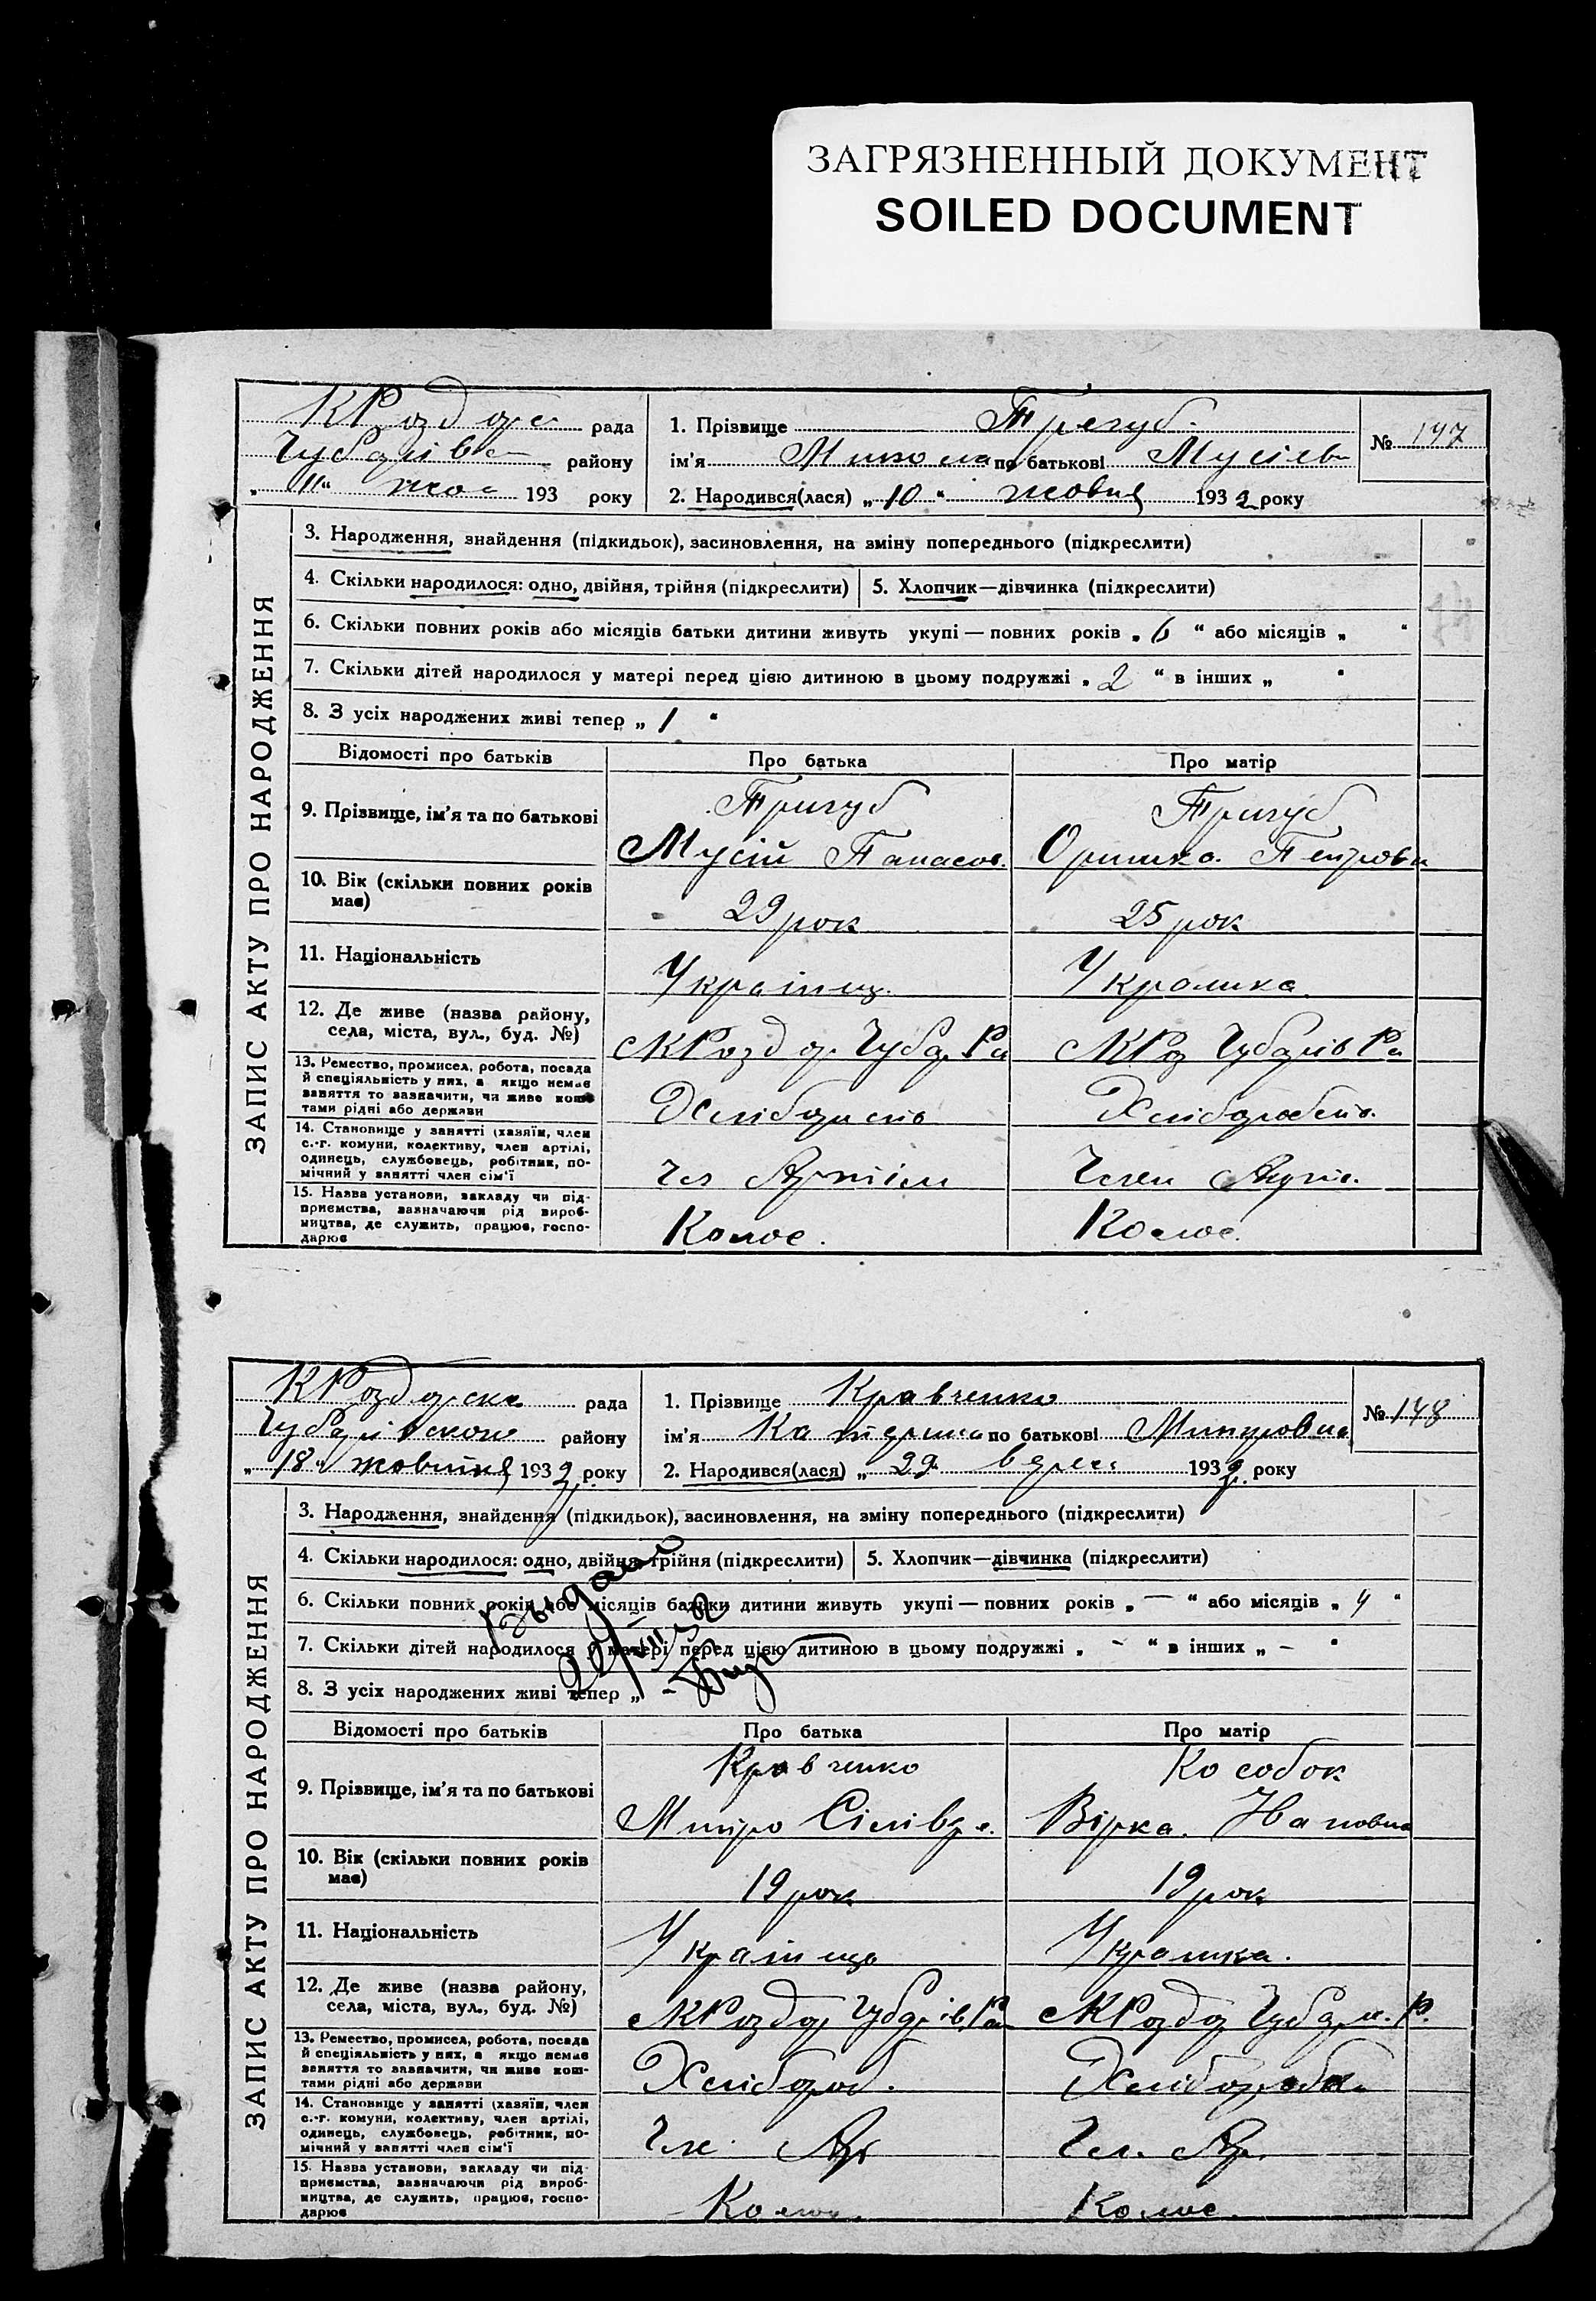 ЗАГРЯЗНЕННЫЙ ДОКУМЕНТ
SOILED DOCUMENT
ЗАПИС АКТУ ПРО НАРОДЖЕННЯ
КРоздор рада
Чубарівс району
„ 11 “ жов 193 року
1. Прізвище Тригуб
ім'я Микола по батькові Мусієв
2. Народився(лася) „ 10 “ жовня 1932 року
№ 147
3. Народження, знайдення (підкидьок), засиновлення, на зміну попереднього (підкреслити)
4. Скільки народилося: одно, двійня, трійня (підкреслити) 5. Хлопчик—дівчинка (підкреслити)
6. Скільки повних років або місяців батьки дитини живуть укупі — повних років „ 6 “ або місяців „ “
7. Скільки дітей народилося у матері перед цією дитиною в цьому подружжі „ 2 “ в інших „ “
8. З усіх народжених живі тепер „ 1 “
Відомості про батьків Про батька Про матір
9. Прізвище, ім'я та по батькові
Тригуб Тригуб
Мусій Панасов. Оришка Петровн
10. Вік (скільки повних років має)
29 рок 25 рок
11. Національність
Українц. Украинка
12. Де живе (назва району, села, міста, вул., буд. №)
МКРозд ор. Чубар. Ра МКРоз Чубарів Ра
13. Ремество, промисел, робота, посада
й спеціяльність у них, а якщо немає
заняття то зазначити, чи живе кош-
тами рідні або держави
Хлібороб
14. Становище у занятті (хазяїн, член
с.-г. комуни, колективу, член артілі,
одинець, службовець, робітник, по-
мічний у занятті член сім'ї
Чл Артіли Член Арті.
15. Назва установи, закладу чи під-
приємства, зазначаючи рід вироб-
ництва, де служить, працює, госпо-
дарює
Колос. Колос.
ЗАПИС АКТУ ПРО НАРОДЖЕННЯ
КРоздорска рада
Чубарівского району
„ 18 “ жовтня 1932 року
1. Прізвище Кравченко
ім'я Катерина по батькові Митровна
2. Народився(лася) „ 29 “ верес 1932 року
№ 148
3. Народження, знайдення (підкидьок), засиновлення, на зміну попереднього (підкреслити)
4. Скільки народилося: одно, двійня, трійня (підкреслити) 5. Хлопчик—дівчинка (підкреслити)
6. Скільки повних років або місяців батьки дитини живуть укупі — повних років „ — “ або місяців „ 4 “
7. Скільки дітей народилося у матері перед цією дитиною в цьому подружжі „ - “ в інших „ - “
8. З усіх народжених живі тепер „ -
Відомості про батьків Про батька Про матір
9. Прізвище, ім'я та по батькові
Кравченко Кособок
Митро Вірка. Ивановна
10. Вік (скільки повних років має)
19 рок 19 рок
11. Національність
Українць Украинка.
12. Де живе (назва району, села, міста, вул., буд. №)
МКРоздор Чубарів. Ра МКРоздор Чубар. Р.
13. Ремество, промисел, робота, посада
й спеціяльність у них, а якщо немає
заняття то зазначити, чи живе кош-
тами рідні або держави
Хлібороб. Хлібороб
14. Становище у занятті (хазяїн, член
с.-г. комуни, колективу, член артілі,
одинець, службовець, робітник, по-
мічний у занятті член сім'ї
Чле. Ар Чл. Ар.
15. Назва установи, закладу чи під-
приємства, зазначаючи рід вироб-
ництва, де служить, працює, госпо-
дарює
Колос. Колос.